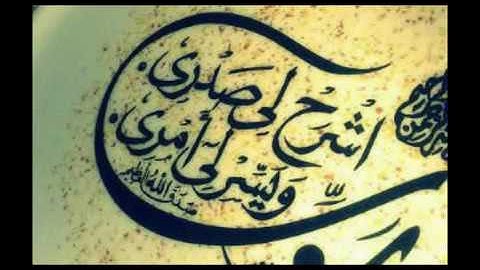 رب
اشْرَحْ لِي صَدْرِي.
وَيَسِّرْ لِي أَمْرِي.
صدق الله العظيم